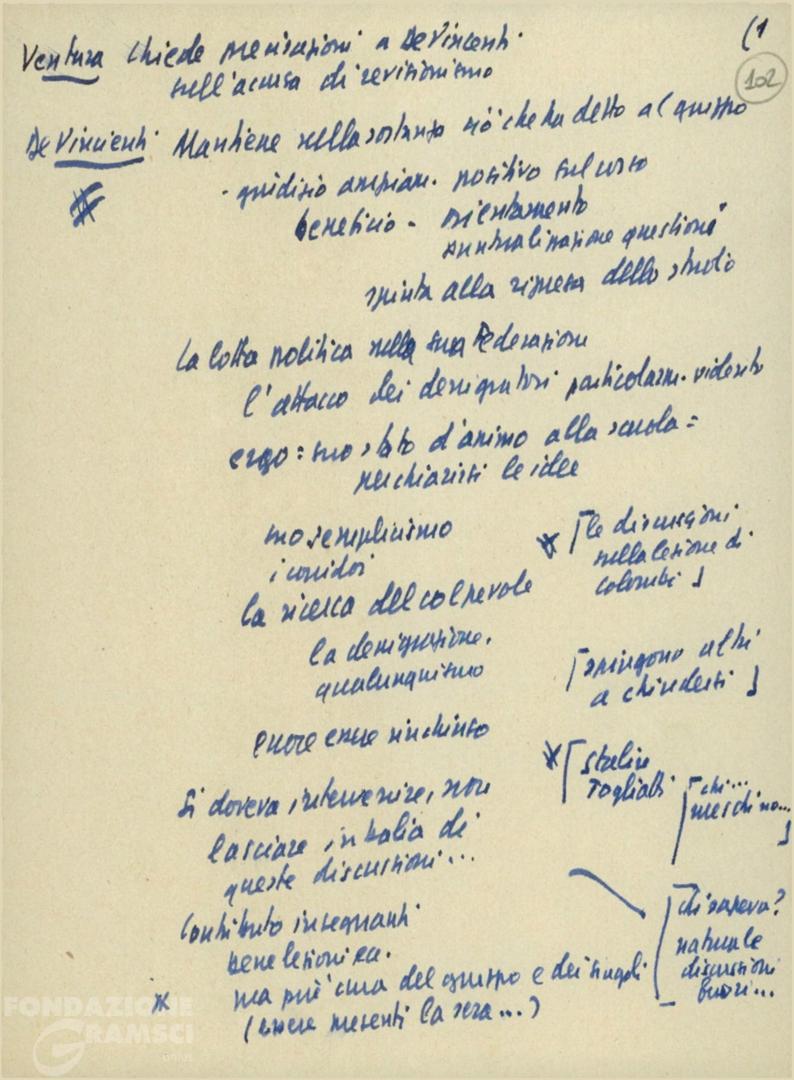 (1
102
Ventura chiede precisazioni a DeVincenti
sull'accusa di revisionismo
DeVincenti Mantiene nella sostanza ciò che ha detto al gruppo
- giudizio ampiam. positivo sul corso
beneficio - orientamento
puntualizzazione questioni
spinta alla ripresa dello studio
La lotta politica nella sua Federazione
l'attacco dei denigratori particolarm.
ergo = suo stato d'animo alla scuola =
per chiarirsi le idee
suo semplicismo
i corridoi
la ricerca del colpevole
la denigrazione.
qualunquismo
errore essere rinchiuso
Si doveva intervenire, non
lasciare in balia di
queste discussioni...
Contributo insegnanti
bene lezioni ecc.
ma più cura del gruppo e dei singoli
(essere presenti la sera...)
[le discussioni
sulla lezione di
Colombi]
[spingono altri
a chiudersi]
[Stalin
Togliatti
[chi...
meschino...]
[chi sapeva?
naturale
discussioni
fuori...
FONDAZIONE
GRAMSCI